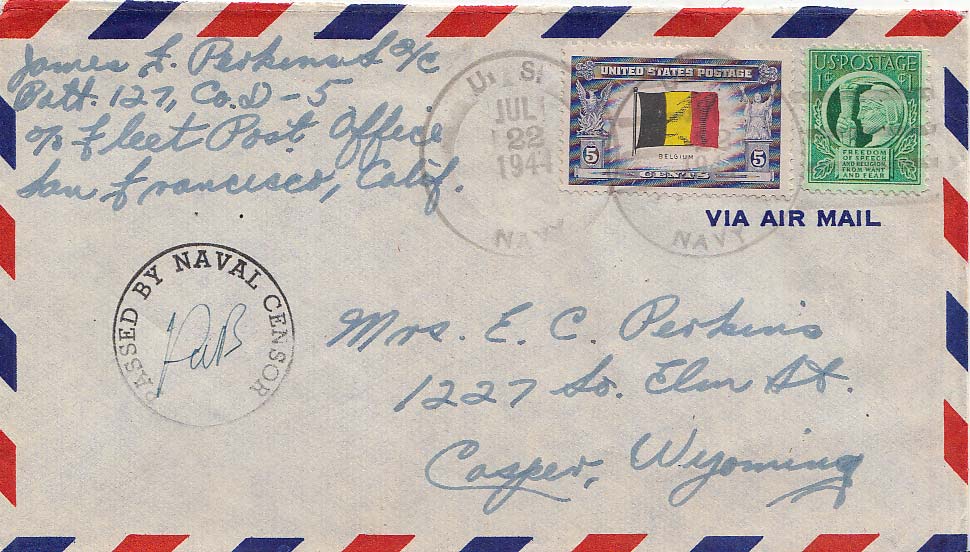 James L. Perkins S 2/c
Batt. 127, Co. D-5
c/o Fleet Post Office
San Francisco, Calif.
U. S.
JUL
22
1944
NAVY
UNITED STATES POSTAGE
BELGIUM
5 5
CENTS
NAVY
U.S. POSTAGE
1¢ ¢1
FREEDOM
OF SPEECH
AND RELIGION,
FROM WANT
AND FEAR
VIA AIR MAIL
PASSED BY NAVAL CENSOR
Mrs. E. C. Perkins
1227 So. Elm St.
Casper, Wyoming